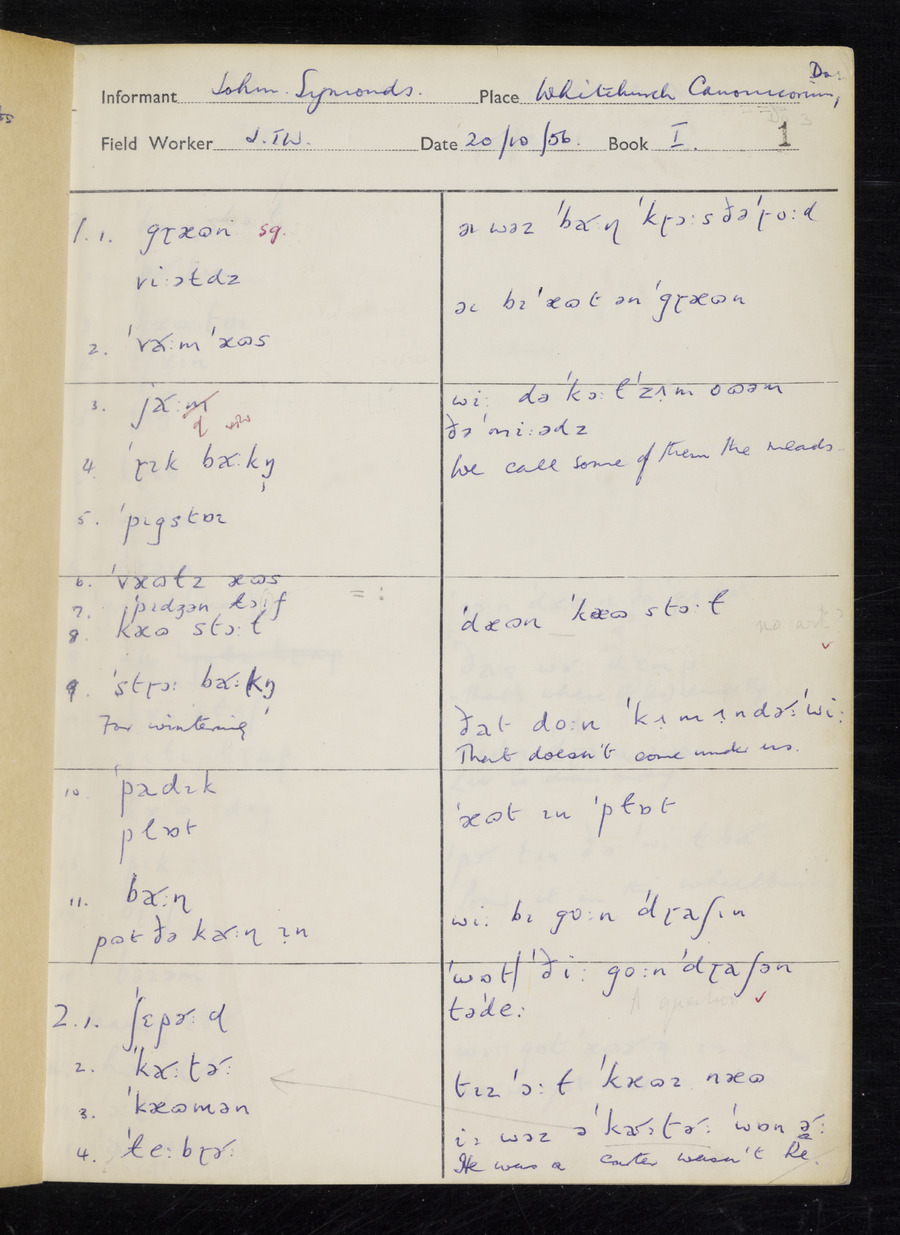 Do
Informant John Symonds. Place Whitchurch Canonicorum,
Field Worker J.T.W. Date 20/10/56. Book I. 1
1. 1. gɽæɷn sg.
vi:ətdz
2. ˈvɑ˞:m ˈæɷs
3. jɑ˞:
4. ˈɽɪk bɑ˞:kn̩
5. ˈpɪgstɒɪ
6. ˈvæɷɫz æɷs
7. ˈpɪdʒən
8. kæɷ stɔ:ɫ
9. ˈstɽɔ: bɑ˞:kn̩
For wintering
10. ˈpædɪk
plɒt
11. bɑ˞:ɳ
pɷt ðə kɑ˞:ɳ ɪn
2. 1. ˈʃɛpə˞:d
2. ˈkɑ˞:ʈə˞:
3. ˈkæɷmən
4. ˈɫe:bɽə˞:
əɪ wəz ˈbɑ˞:ɳ ˈkɽɔ:s ðəˈɽo:d
əɪ bɪˈæɷt ən ˈgɽæɷn
wi: də ˈkɔ:ɫ ˈzʌm oɷəm
ðəˈmi:ədz
We call some of them the meads
= :
ˈdæɷn ˈkæɷ stɔ:ɫ
no art?
ðat do:n ˈkʌm ʌndə˞:ˈwi:
That doesn't come under us.
ˈæɷt ɪn ˈpɫɒt
wi: bɪ go:n ˈdɽaʃɪn
ˈwɒt ˈði: go:n ˈdɽaʃən
təˈde:
A question
tɪz ˈɔ:ɫ ˈkæɷz næɷ
i: wəz əˈkɑ˞:ʈə˞: ˈwɒn ə˞:
He was a carter wasn't he.